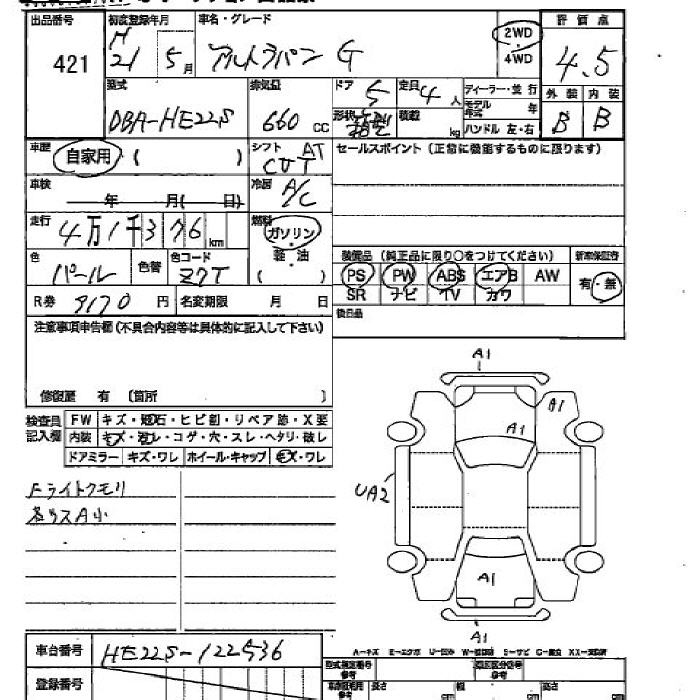 出品番号 初度登録年月 車名・グレード 2WD ・ 4WD 評価点
421 H 21 5月 アルトラパン G 4.5
型式 排気量 ドア 5 定員 4人 ディーラー・並行 外装 内装
DBA-HE22S 660cc 形状 積載 kg モデル年式 年 B B
ハンドル 左・右
車歴 自家用 ( ) シフト AT CVT セールスポイント (正常に機能するものに限ります)
車検 年 月( 日) 冷房 A/C
走行 4万1千376km 燃料 ガソリン
軽・油
( )
色 パール 色替 色コード Z7T
装備品 (純正品に限り○をつけてください) 新車保証書
PS PW ABS エアB AW 有・無
SR ナビ TV カワ
R券 9170円 名変期限 月 日
後日品
注意事項申告欄 (不具合内容等は具体的に記入して下さい)
修復歴 有 〔箇所 〕
検査員記入欄 FW キズ・飛石・ヒビ割・リペア跡・X要
内装 キズ・汚レ・コゲ・穴・スレ・ヘタリ・破レ
ドアミラー キズ・ワレ ホイール・キャップ キズ・ワレ
Fライトクモリ
A1
A1
A1
UA2
A1
A1
車台番号 HE22S-122536
A-キズ E-エクボ U-凹み
登録番号
型式指定番号 参考 類別区分番号 参考
長さ 幅 高さ